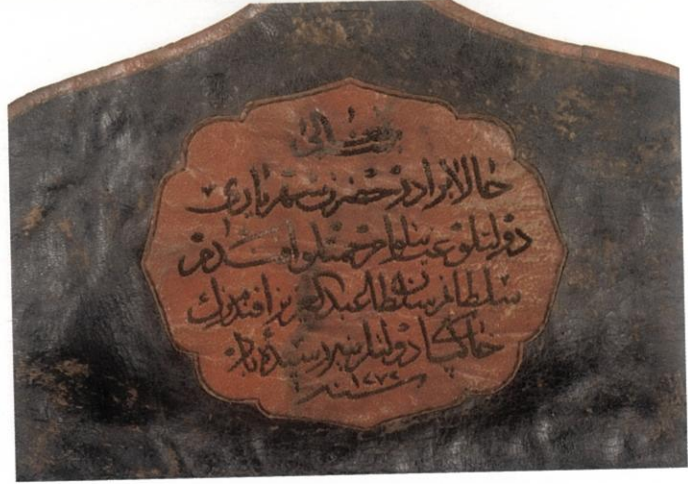 بمنه تعالى
حالا برادر حضرت شهریاری
دولتلو عنایتلو مرحمتلو افندم
سلطانم سلطان عبدالعزیز افندینك
خاکپای دولتلرینه رسیده باد
سنه ١٢٧٢